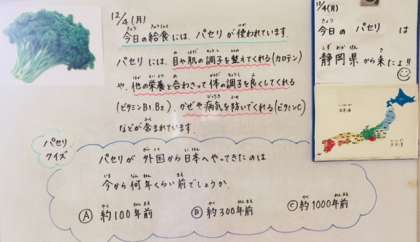 12/4(月)
今日の給食には、パセリが使われています。
パセリには、目や肌の調子を整えてくれる(カロテン)
や、他の栄養と合わさって体の調子を良くしてくれる
(ビタミンB1 B2)、かぜや病気を防いでくれる(ビタミンC)
などが含まれています。
パセリ
クイズ
パセリが外国から日本へやってきたのは
今から何年くらい前でしょうか。
Ⓐ 約100年前 Ⓑ 約300年前 Ⓒ 約1000年前
12/4(月)
今日のパセリは
静岡県から来たよ!!